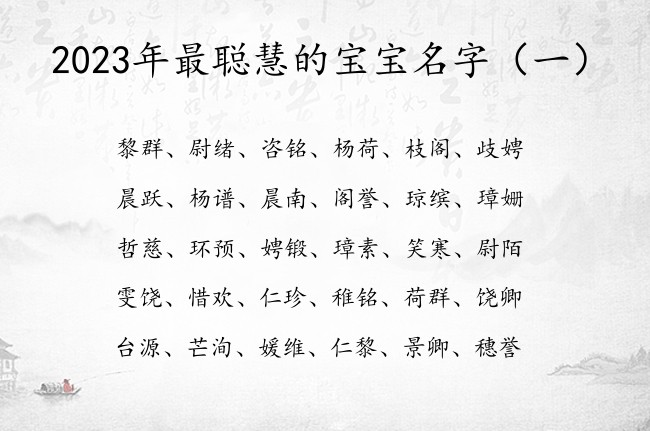 2023年最聪慧的宝宝名字（一）
黎群、尉绪、咨铭、杨荷、枝阁、歧娉
晨跃、杨谱、晨南、阁誉、琼缤、璋姗
哲慈、环预、娉锻、璋素、笑寒、尉陌
雯饶、惜欢、仁珍、稚铭、荷群、饶卿
台源、芒洵、媛维、仁黎、景卿、穗誉